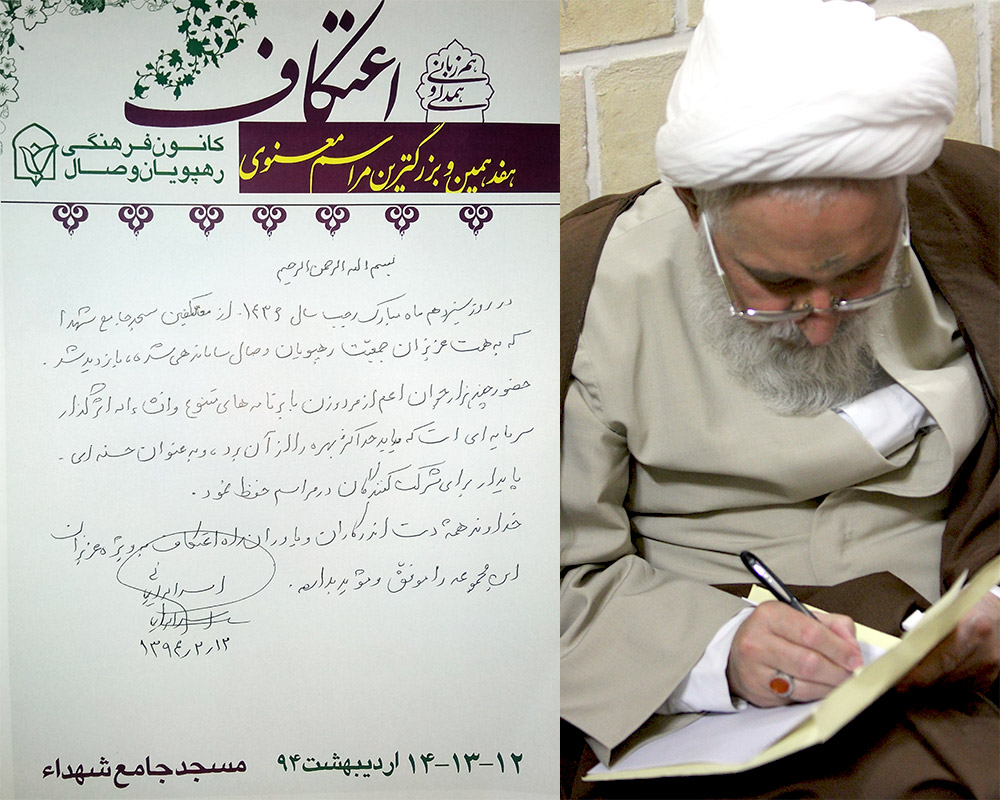 اعتکاف
هم زبانی
همدلی و
هفدهمین و بزرگترین مراسم معنوی
کانون فرهنگی
رهپویان وصال
بسم الله الرحمن الرحیم
در روز سیزدهم ماه مبارک رجب سال ۱۴۳۶ از معتکفین مسجد جامع شهدا
که به همت عزیزان جمعیت رهپویان وصال ساماندهی شده، بازدید شد.
حضور چند هزار جوان اعم از مرد و زن با برنامه های متنوع و انشاءالله اثرگذار
سرمایه ای است که باید حداکثر بهره را از آن برد، و به عنوان حسنه ای
پایدار برای شرکت کنندگان در مراسم حفظ نمود.
خداوند همهٔ دست اندرکاران و یاوران اعتکاف بویژه عزیزان
این مجموعه را موفق و مؤید بدارد.
اسد ایرانی
۱۳۹۴/۲/۱۲
۱۲-۱۳-۱۴ اردیبهشت ۹۴ مسجد جامع شهداء